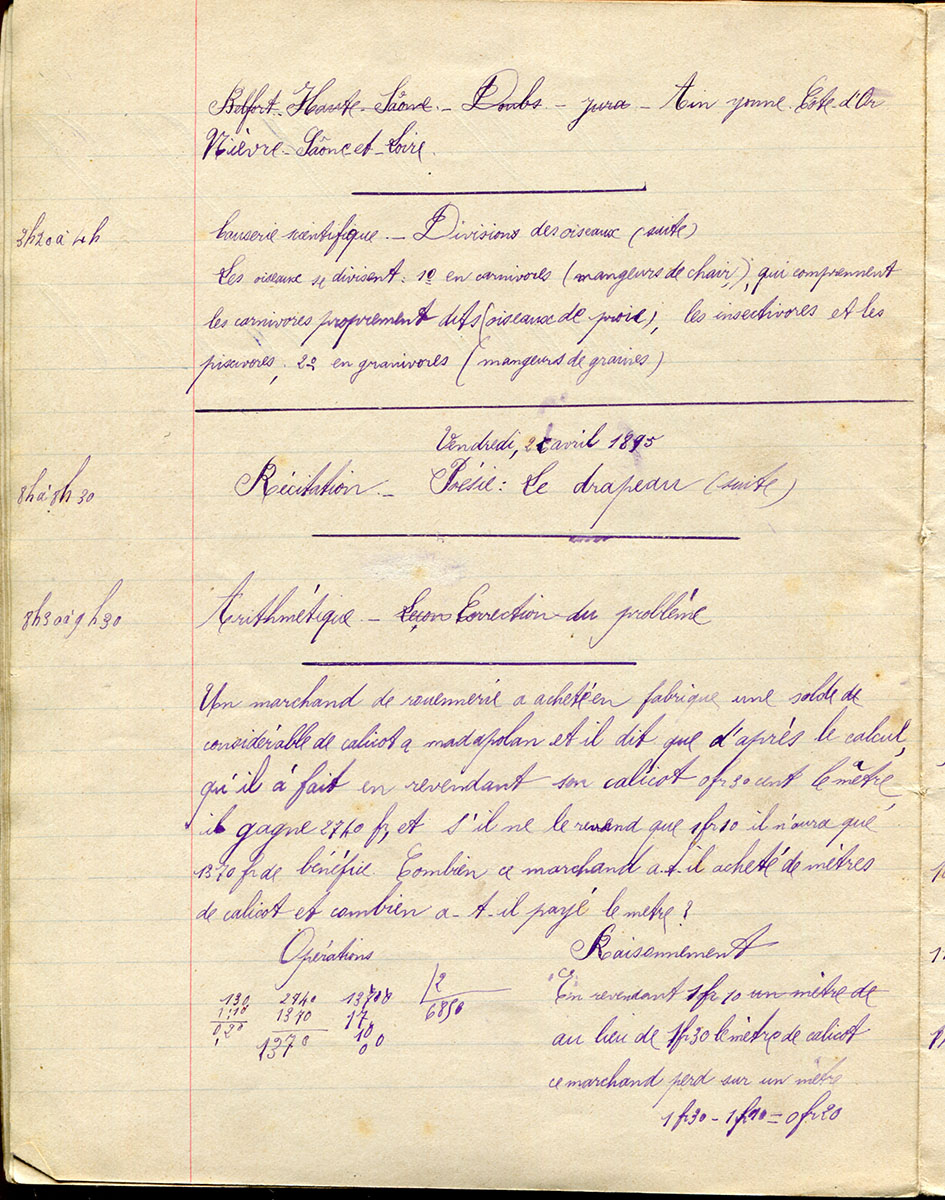 Belfort - Haute - Saône. - Doubs - jura - Ain yonne. Côte d'Or
Nièvre - Saône et - Loire.
3h20 à 4h
Causerie scientifique. - Divisions des oiseaux (suite)
Les oiseaux se divisent : 1o en carnivores (mangeurs de chair), qui comprennent
les carnivores proprement dits (oiseaux de proie), les insectivores et les
piscivores, 2o en granivores (mangeurs de graines)
Vendredi, avril 1895
8h à 8h 30
Récitation. - Poésie : Le drapeau (suite)
8h30 à 9h30
Arithmétique - Leçon Correction du problème
Un marchand de rouennerie a acheté en fabrique une solde de
considérable de calicot madapolan et il dit que d'après le calcul,
qu'il à fait en revendant son calicot le mètre,
il gagne 2740 fr, et s'il ne le revend que 1fr10 il n'aura que
1370 fr de bénéfice. Combien ce marchand a-t-il acheté de mètres
de calicot et combien a-t-il payé le metre ?
Opérations
Raisonnement
130 2740 13700 2
1,10 1370 17 6850
0,20 1370 10
00
ce
En revendant 1fr10 un mètre de
au lieu de 1fr30 le mètre de calicot
ce marchand perd sur un mètre
1fr30 - 1fr10 = 0fr20